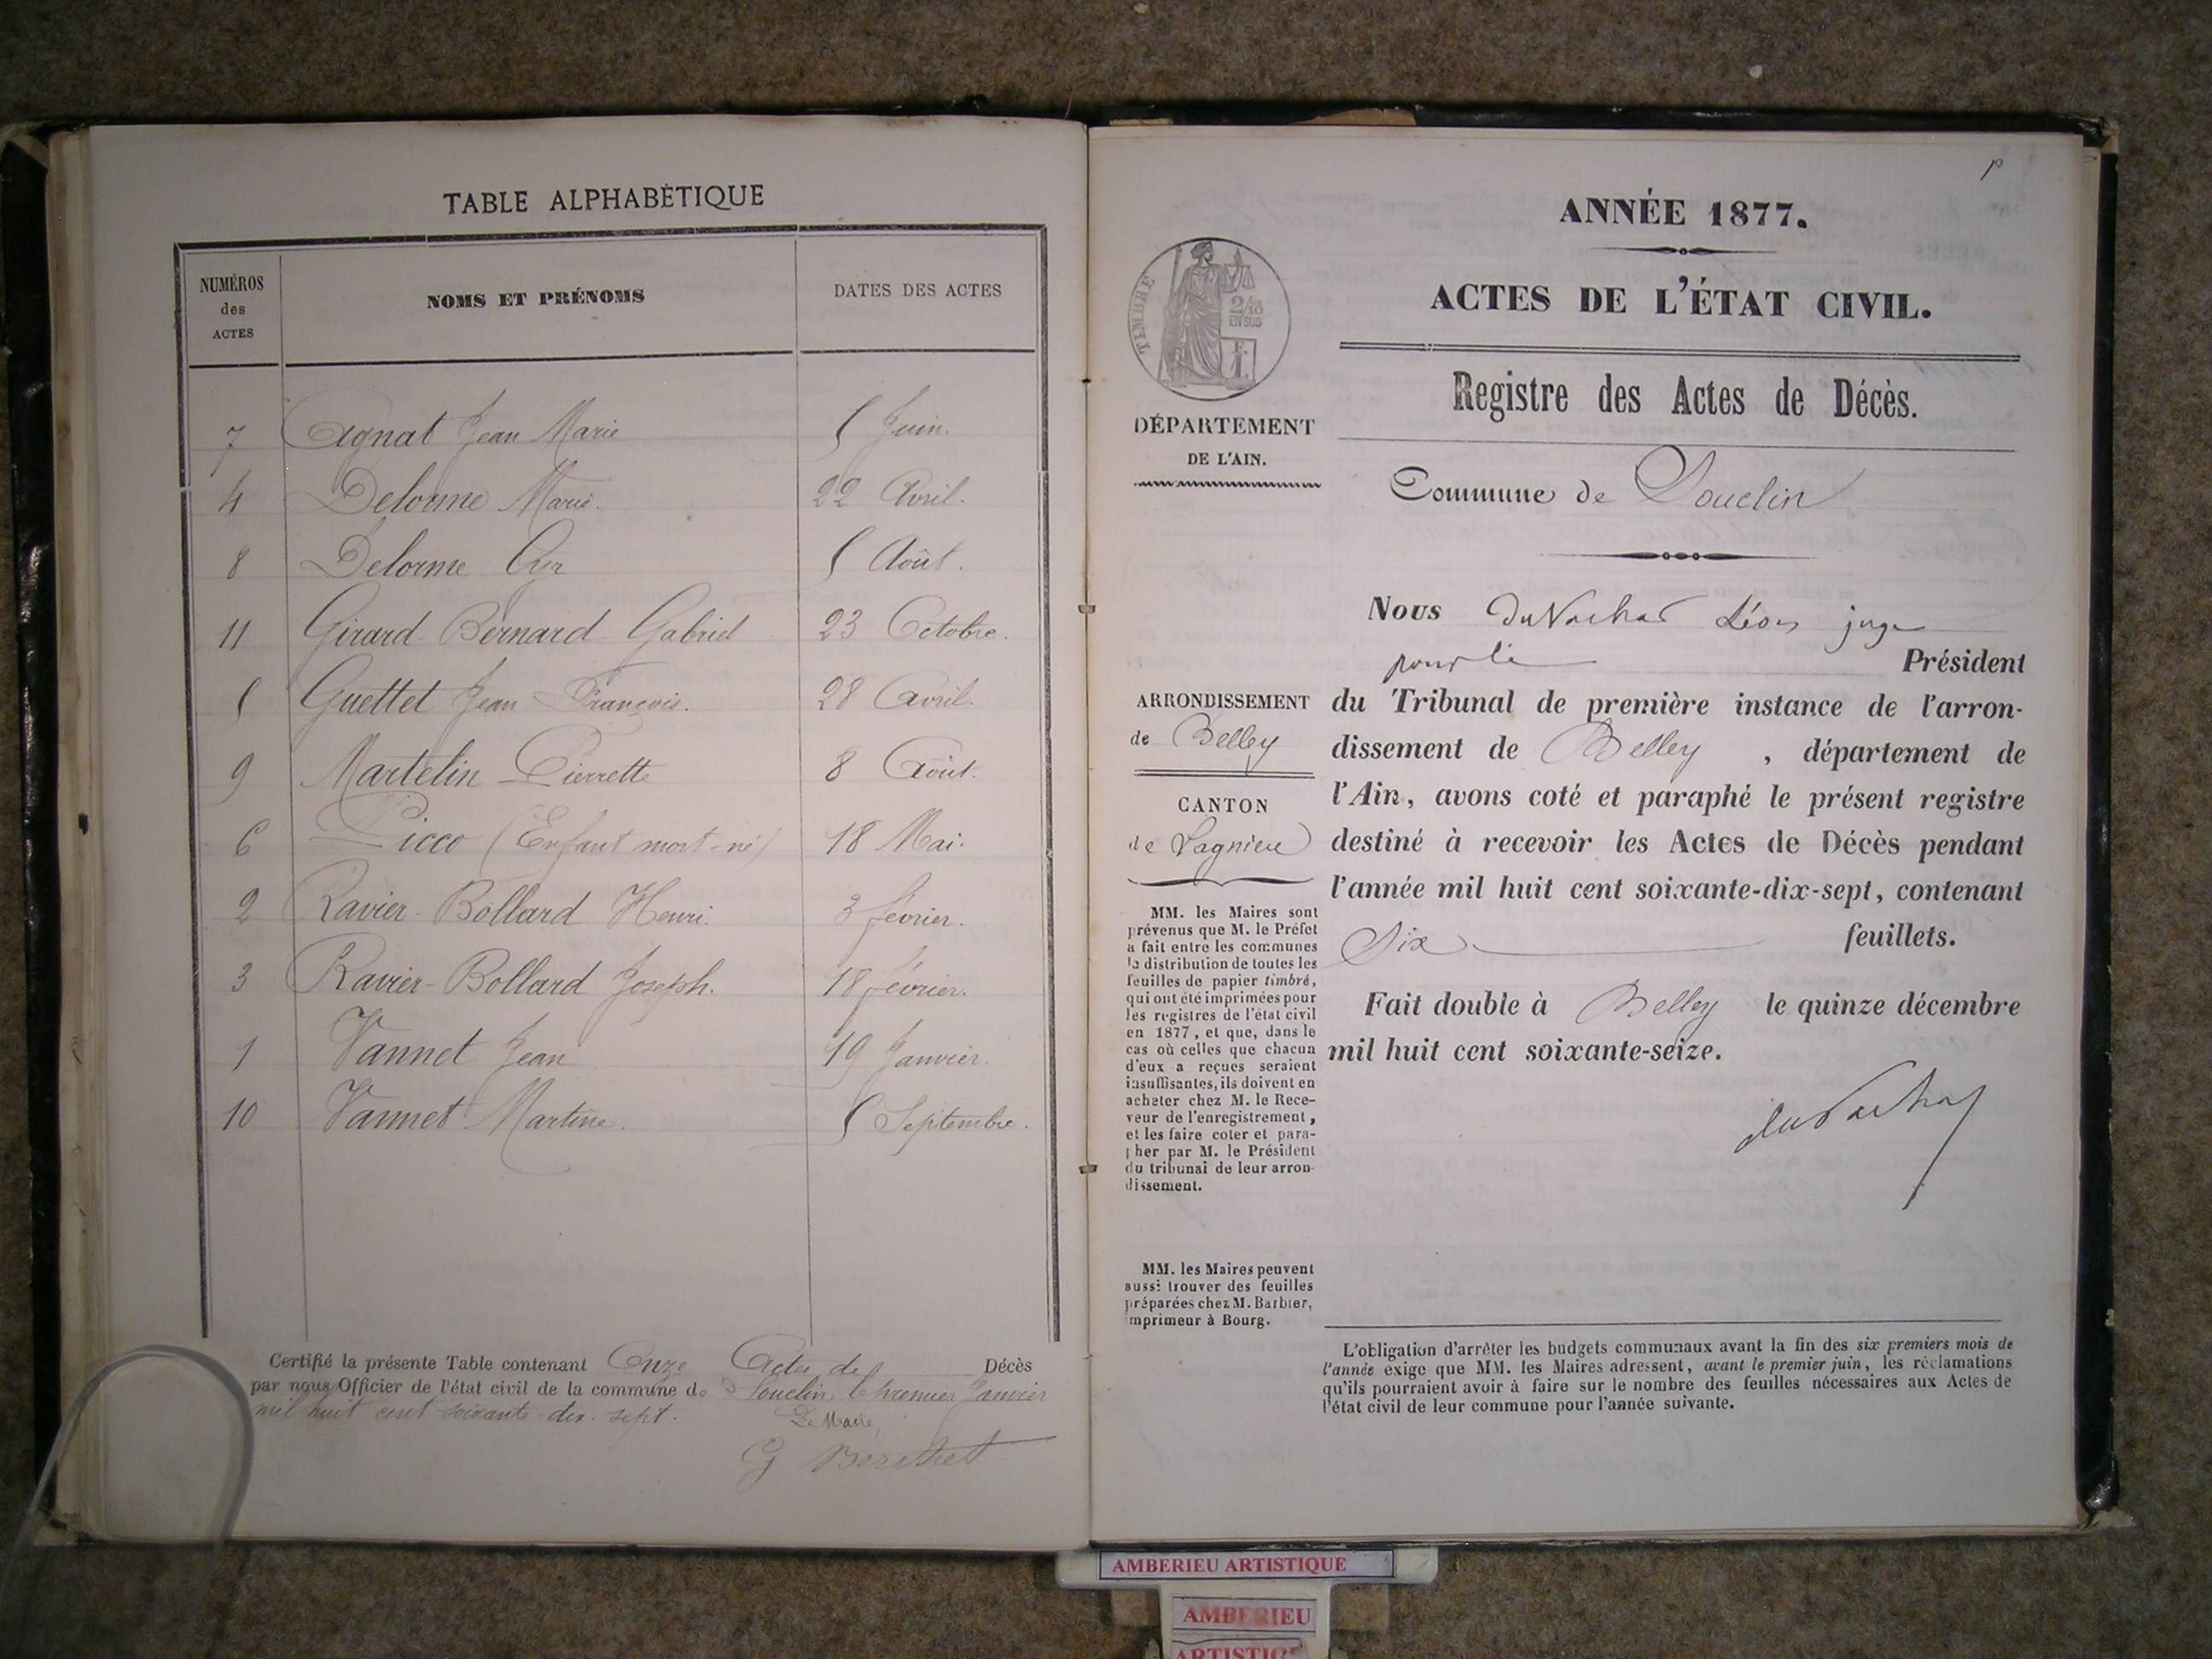 TABLE ALPHABÉTIQUE
NUMÉROS des ACTES NOMS ET PRÉNOMS DATES DES ACTES
7 Agnat Jean Marie 5 Juin.
4 Delorme Marie. 22 Avril.
8 Delorme Cyr 5 Août.
11 Girard-Bernard Gabriel 23 Octobre.
5 Guettet Jean François. 28 Avril.
9 Martelin Pierrette 8 Août.
6 Picco (Enfant mort-né) 18 Mai.
2 Ravier-Bollard Henri. 3 février.
3 Ravier-Bollard Joseph. 18 février.
1 Vannet Jean 19 Janvier.
10 Vannet Martine. 5 Septembre.
Certifié la présente Table contenant Onze Actes de Décès
par nous Officier de l'état civil de la commune de Souclin le premier Janvier
mil huit cent soixante-dix-sept.
Le Maire,
G Berthet
P
ANNÉE 1877.
ACTES DE L'ÉTAT CIVIL.
TIMBRE
2/10
EN SUS
F.
1.
DÉPARTEMENT
DE L'AIN.
Registre des Actes de Décès.
Commune de Souclin
ARRONDISSEMENT
de Belley
CANTON
de Lagnieu
MM. les Maires sont
prévenus que M. le Préfet
a fait entre les communes
la distribution de toutes les
feuilles de papier timbré,
qui ont été imprimées pour
les registres de l'état civil
en 1877, et que, dans le
cas où celles que chacun
d'eux a reçues seraient
insuffisantes, ils doivent en
acheter chez M. le Rece-
veur de l'enregistrement,
et les faire coter et para-
pher par M. le Président
du tribunal de leur arron-
dissement.
MM. les Maires peuvent
aussi trouver des feuilles
préparées chez M. Barbier,
imprimeur à Bourg.
Nous Léon juge
pour le Président
du Tribunal de première instance de l'arron-
dissement de Belley, département de
l'Ain, avons coté et paraphé le présent registre
destiné à recevoir les Actes de Décès pendant
l'année mil huit cent soixante-dix-sept, contenant
Six feuillets.
Fait double à Belley le quinze décembre
mil huit cent soixante-seize.
L'obligation d'arrêter les budgets communaux avant la fin des six premiers mois de
l'année exige que MM. les Maires adressent, avant le premier juin, les réclamations
qu'ils pourraient avoir à faire sur le nombre des feuilles nécessaires aux Actes de
l'état civil de leur commune pour l'année suivante.
AMBERIEU ARTISTIQUE
AMBERIEU
ARTISTIQUE